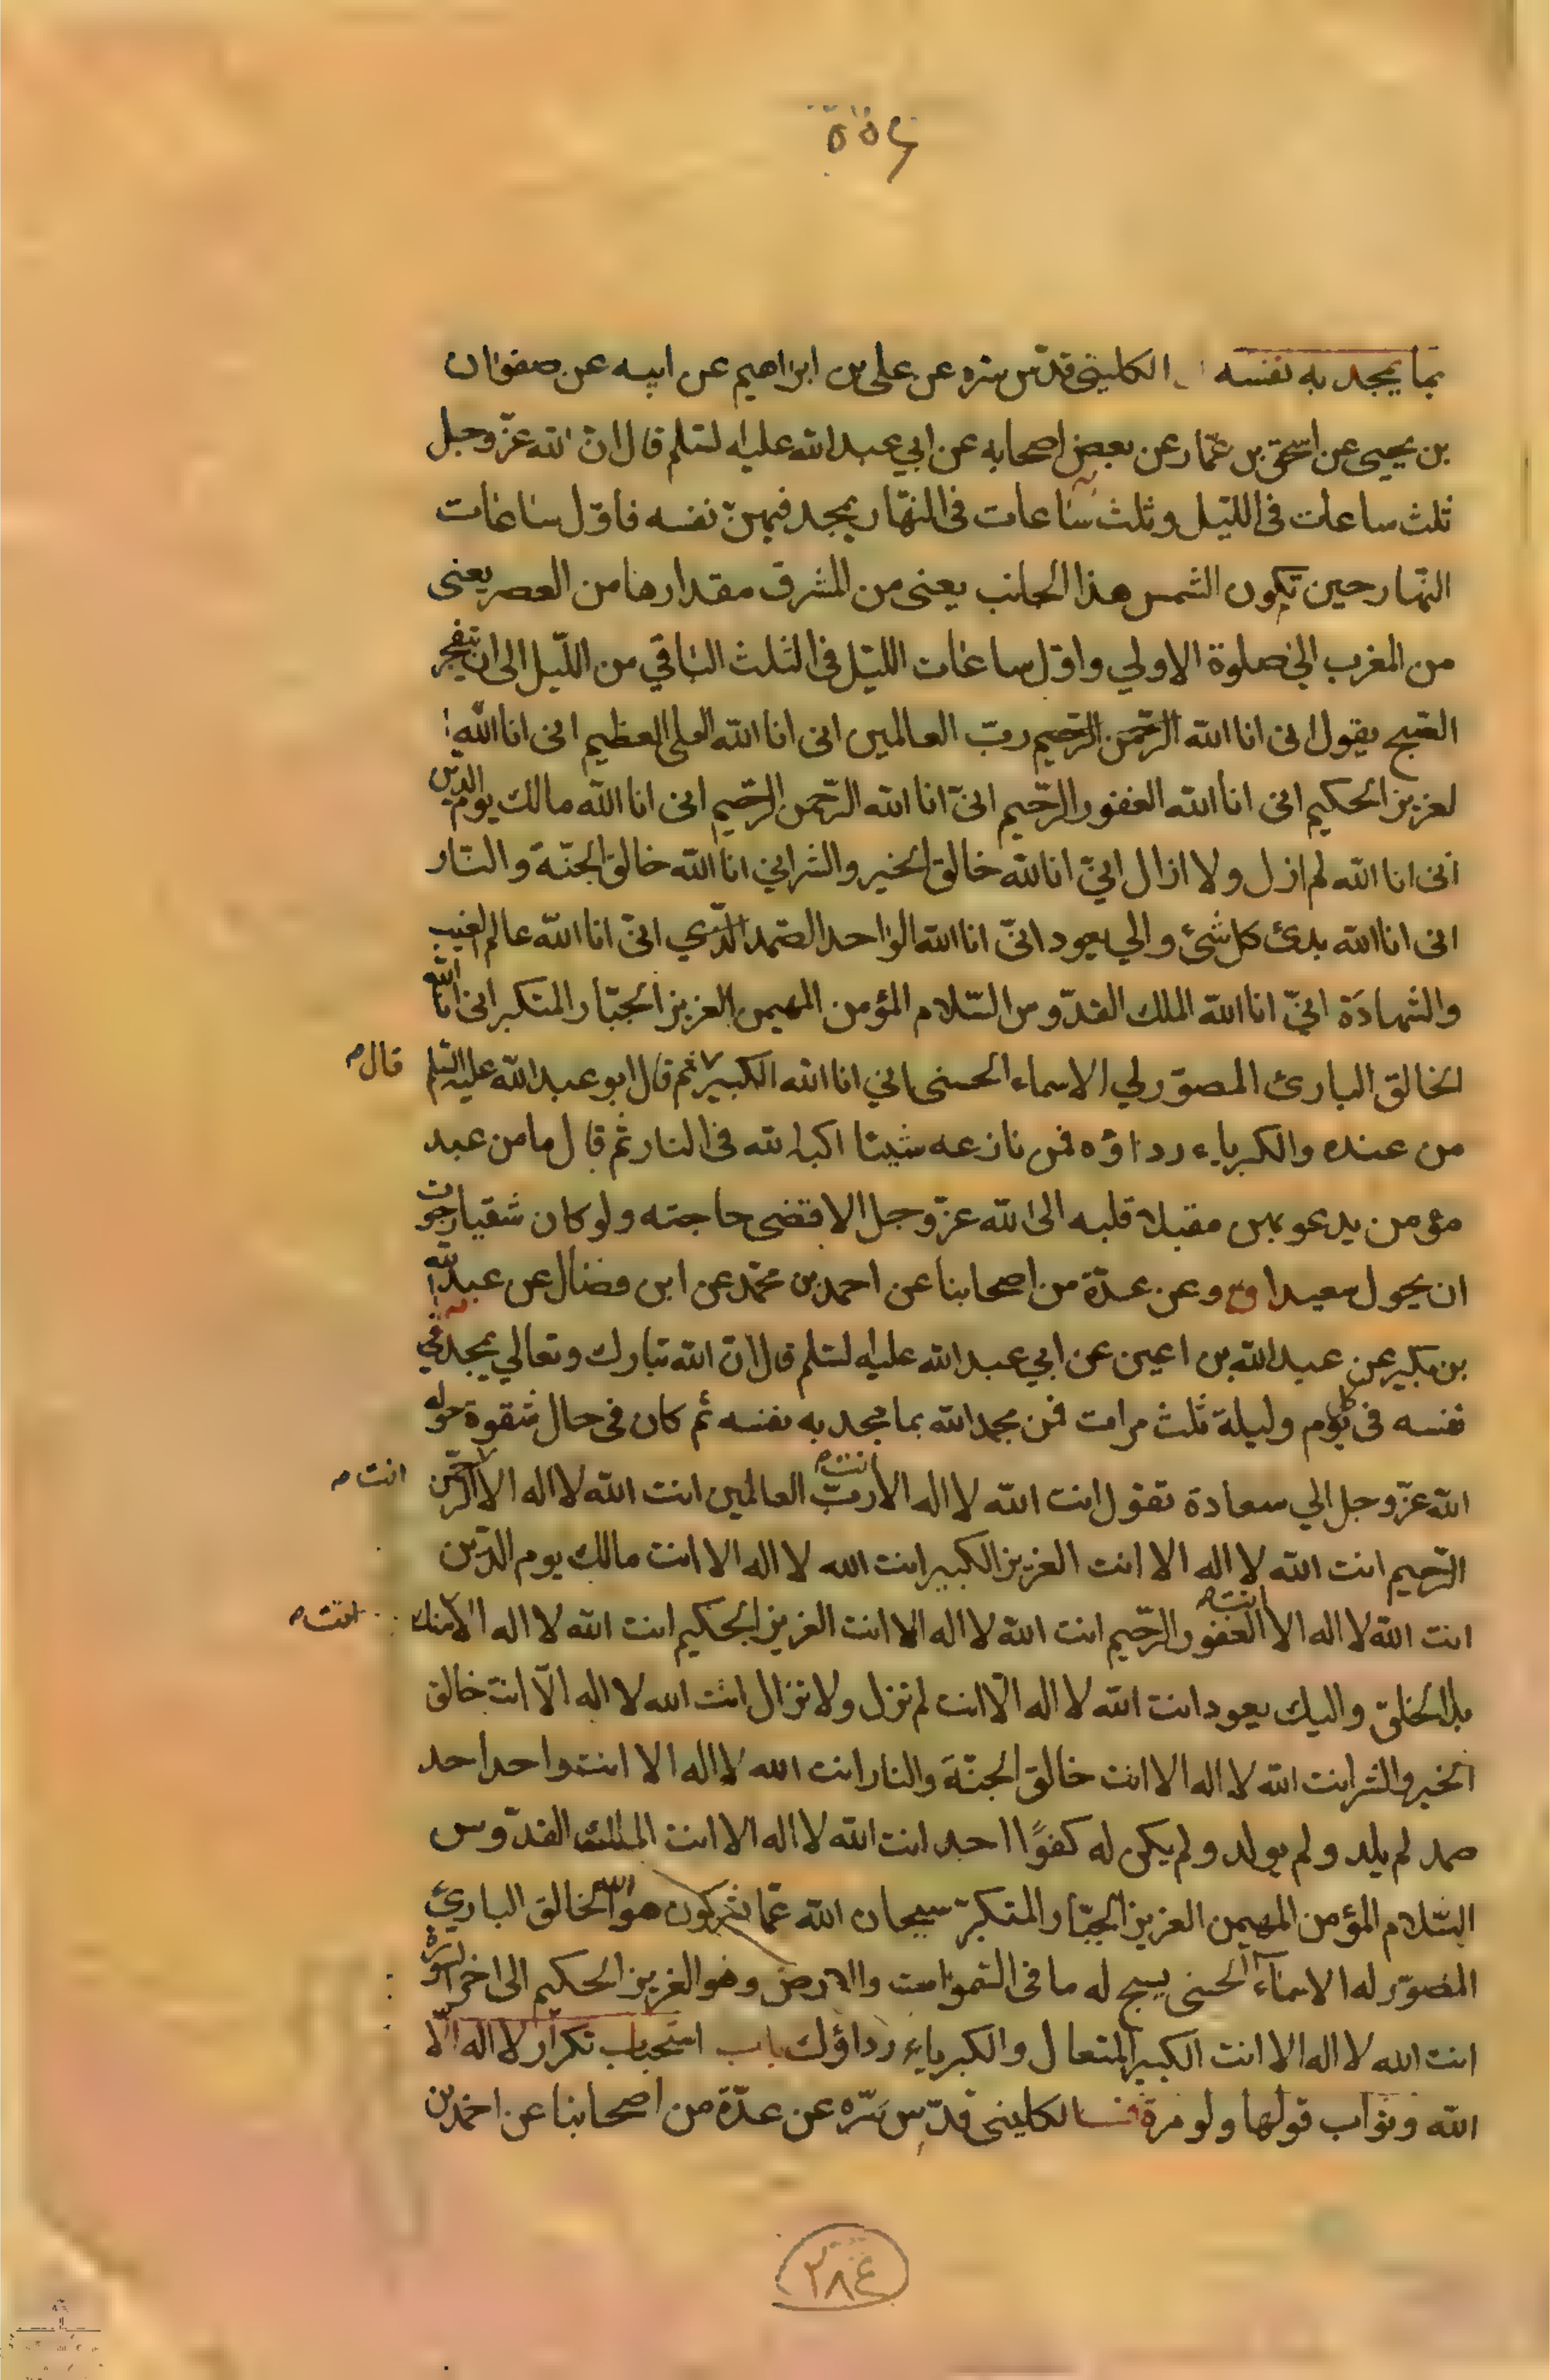 ٥٥٤
بما يمجد به نفسه الكليني قدّس سره عن علي بن ابراهيم عن ابيه عن صفوان
بن يحيى عن اسحق بن عمّار عن بعض اصحابه عن ابي عبد الله عليه السلم قال انّ الله عزّ وجل
ثلث ساعات في الليل وثلث ساعات في النهار يمجد فيهنّ نفسه فاوّل ساعات
النهار حين تكون الشمس هذا الجانب يعني من المشرق مقدارها من العصر يعني
من المغرب الى صلوة الاولي واوّل ساعات الليل في الثلث الباقي من اللّيل الى ان ينفجر
الصبح يقول انى انا الله الرّحمن الرّحيم ربّ العالمين انى انا الله العلى العظيم انى انا الله ا
لعزيز الحكيم انى انا الله الغفور الرّحيم انىّ انا الله الرّحمن الرّحيم انى انا الله مالك يوم الدّين
انى انا الله لم ازل ولا ازال انيّ انا لله خالق الخير والشر اني انا الله خالق الجنّة والنار
انى انا الله بدئ كل شئ والي يعود انىّ انا الله الواحد الصّمد الّذي انىّ انا الله عالم الغيب
والشهادة انيّ انا الله الملك القدّوس السّلام المؤمن المهيمن العزيز الجبّار المتكبر انى انا الله
الخالق البارئ المصوّر لي الاسماء الحسنى اني انا الله الكبير ثم قال ابو عبد الله عليه السّلم قال
من عنده والكبرياء رداؤه فمن نازعه شيئا اكبه الله في النار ثمّ قال ما من عبد
مؤمن يدعو بهن مقبلا قلبه الى الله عزّ وجل الا قضى حاجته ولو كان شقيا رجوت
ان يحول سعيدا وعن عدّة من اصحابنا عن احمد بن محمّد عن ابن فضال عن عبد الله
بن بكير عن عبد الله بن اعين عن ابي عبد الله عليه السلم قال انّ الله تبارك وتعالي يمجد في
نفسه في كل يوم وليلة ثلث مرات فمن مجد الله بما مجد به نفسه ثم كان في حال شقوة حوله
الله عزّ وجل الي سعادة تقول انت الله لا اله الا انت ربّ العالمين انت الله لا اله الا الرّحمن انت
الرّحيم انت الله لا اله الا انت العزيز الكبير انت الله لا اله الا انت مالك يوم الدّين
انت الله لا اله الا انت الغفور الرّحيم انت الله لا اله الا انت العزيز الحكيم انت الله لا اله الا منك انت
بدا الخلق واليك يعود انت الله لا اله الّا انت لم تزل ولا تزال انت الله لا اله الّا انت خالق
الخير والشر انت الله لا اله الا انت خالق الجنّة والنار انت الله لا اله الا انت واحد احد
صمد لم يلد ولم يولد ولم يكن له كفوًا احد انت الله لا اله الا انت الملك القدّوس
السّلام المؤمن المهيمن العزيز الجبّار المتكبرّ سبحان الله عمّا يشركون هو الله الخالق الباريّ
المصوّر له الاسماء الحسنى يسبح له ما في السّموات والارض وهو العزيز الحكيم الى اخر السورة
انت الله لا اله الا انت الكبير المتعال والكبرياء رداؤك باب استحباب تكرار لا اله الّا
الله وثواب قولها ولو مرة الكليني قدّس سرّه عن عدّة من اصحابنا عن احمد بن
٢٨٤